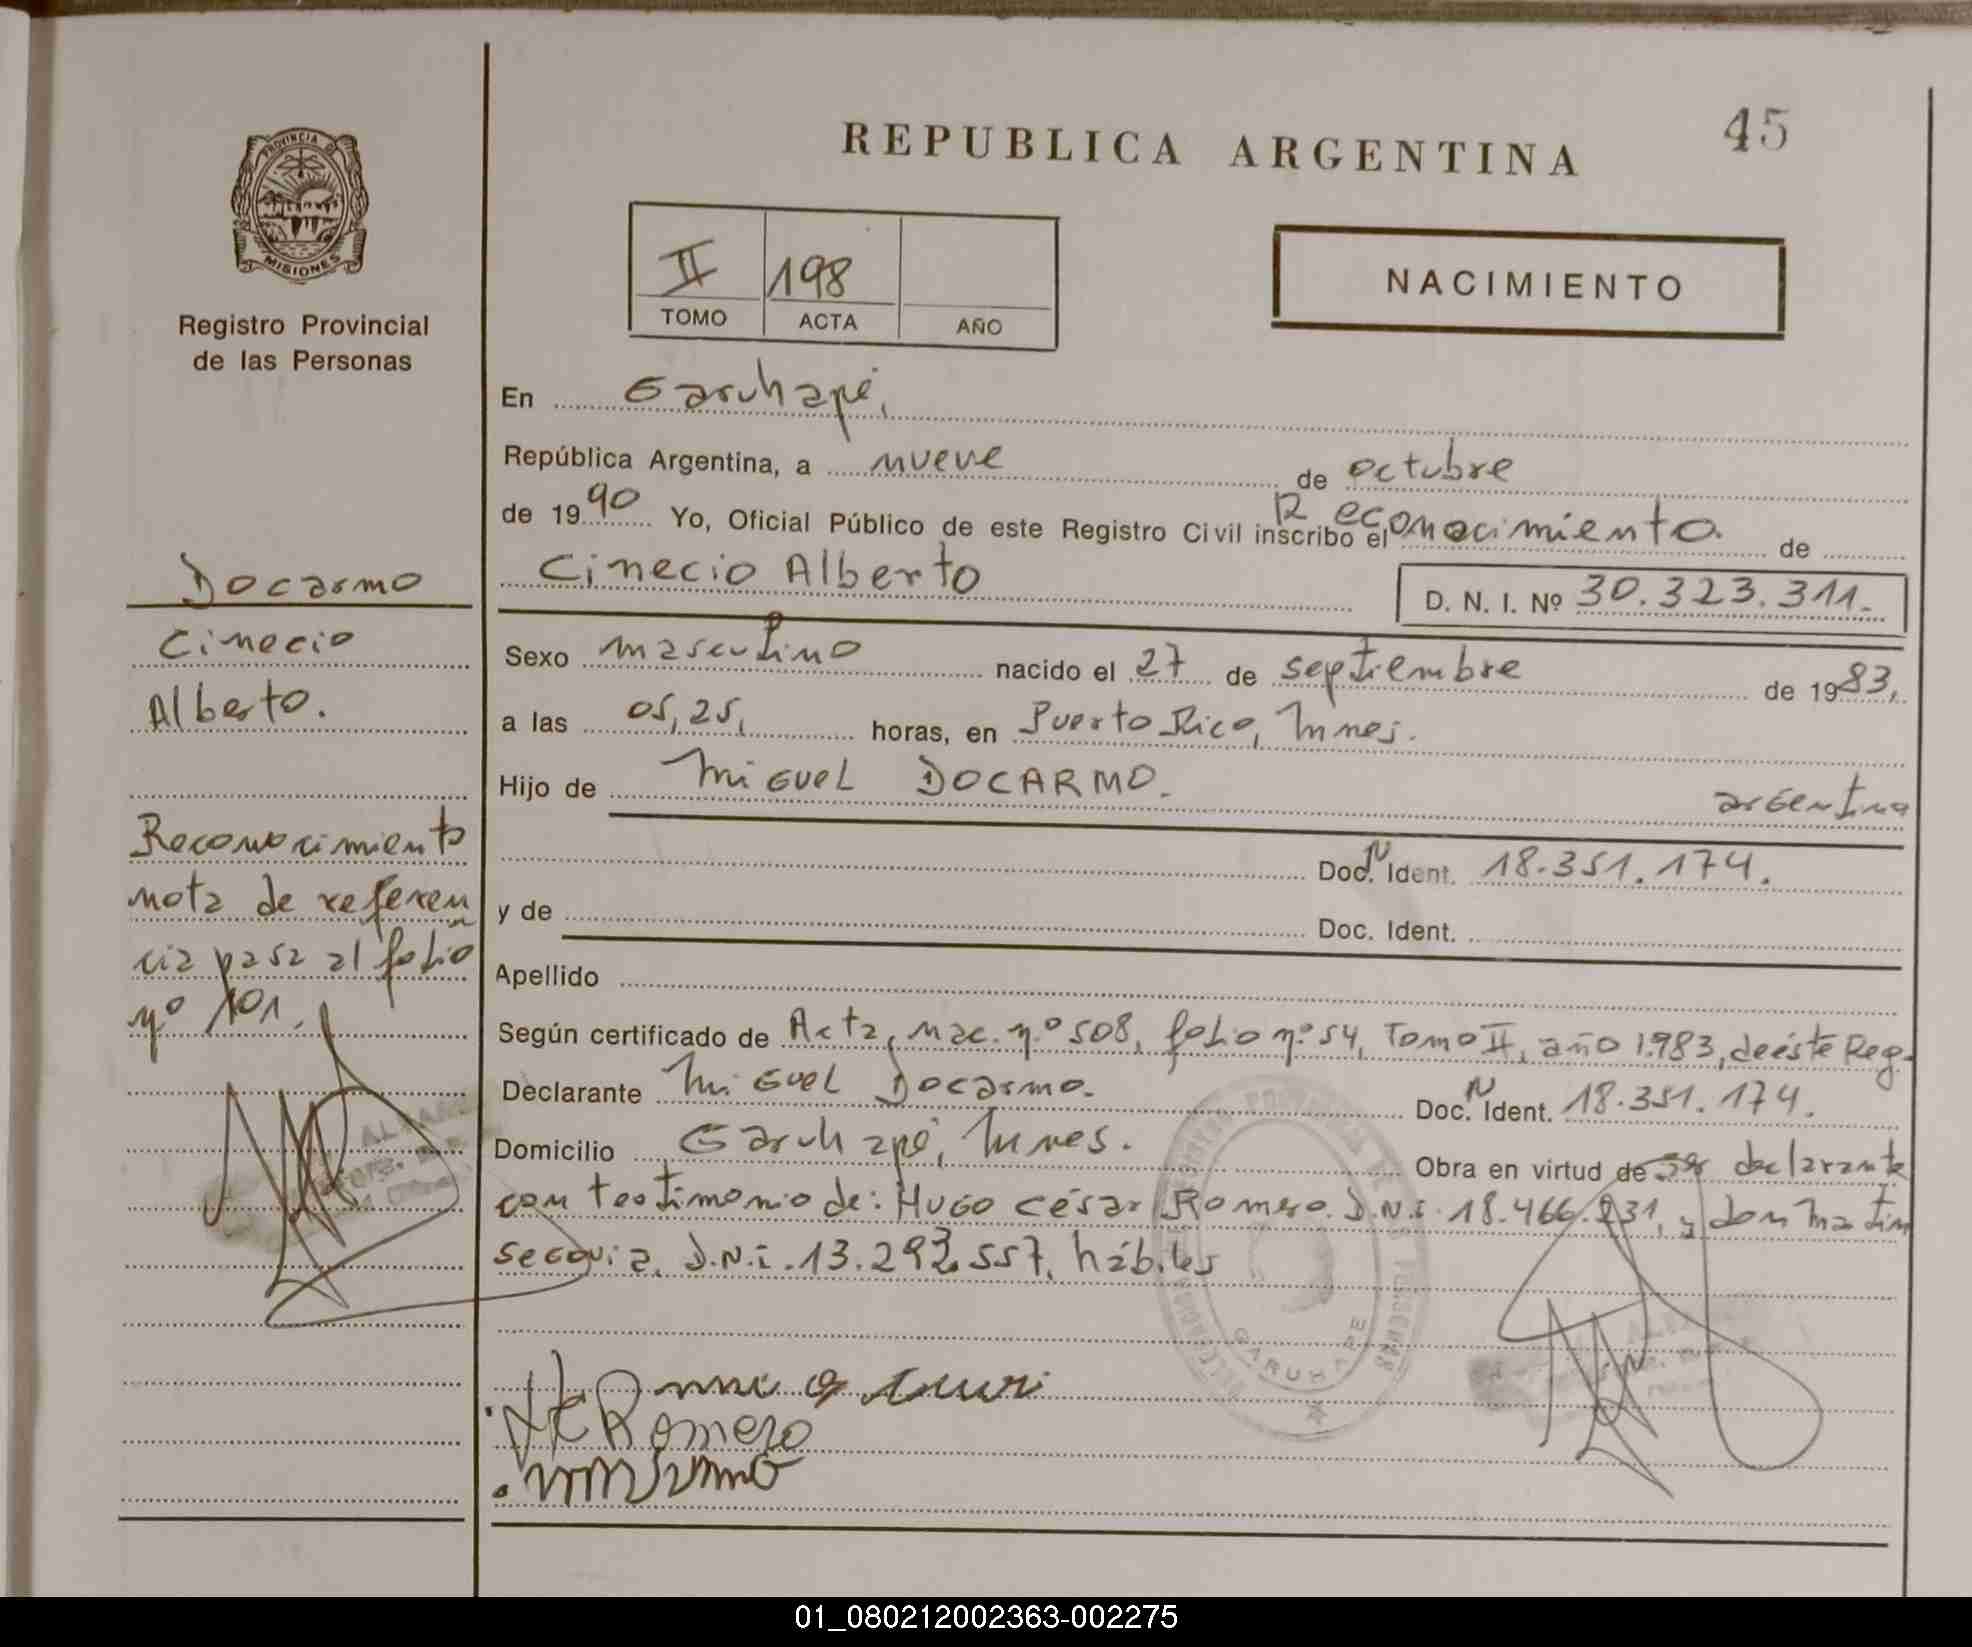 45
REPUBLICA ARGENTINA
PROVINCIA DE
MISIONES
Registro Provincial
de las Personas
II 198
TOMO ACTA AÑO
NACIMIENTO
En Garuhapé,
República Argentina, a nueve de octubre
de 1990 Yo, Oficial Público de este Registro Civil inscribo el Reconocimiento. de
Cinecio Alberto D. N. I. Nº 30.323.311.-
Sexo masculino nacido el 27 de septiembre de 1983,
a las 05,25, horas, en Puerto Rico, Mnes.
Hijo de Miguel DOCARMO. argentina
Doc. N Ident. 18.351.174.
y de Doc. Ident.
Apellido
Según certificado de Acta, nac. nº 508, folio nº 54, Tomo II, año 1.983, de éste Reg.
Declarante Miguel Docarmo. Doc. N Ident. 18.351.174.
Domicilio Garuhapé, Mnes. Obra en virtud de ser declarante
con testimonio de: Hugo César Romero. D.N.i. 18.466.231, y don Matin
Segovia, D.N.i. 13.293.557, hábiles
Docarmo
Cinecio
Alberto.
Reconocimiento
nota de referen
cia pasa al folio
nº 101.
GARUHAPE
Romero
01_080212002363-002275